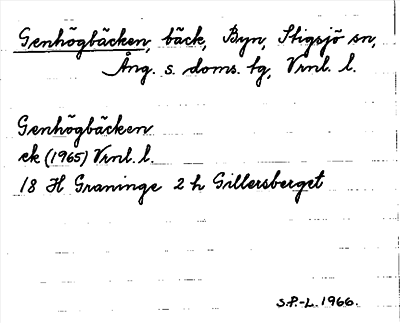 Genhögbäcken, bäck, Byn, Stigsjö sn,
Ång. s. doms. tg, Vrnl. l.
Genhögbäcken
ek (1965) Vrnl. l.
18 H Graninge 2 h Gillersberget
S.P.-L. 1966.